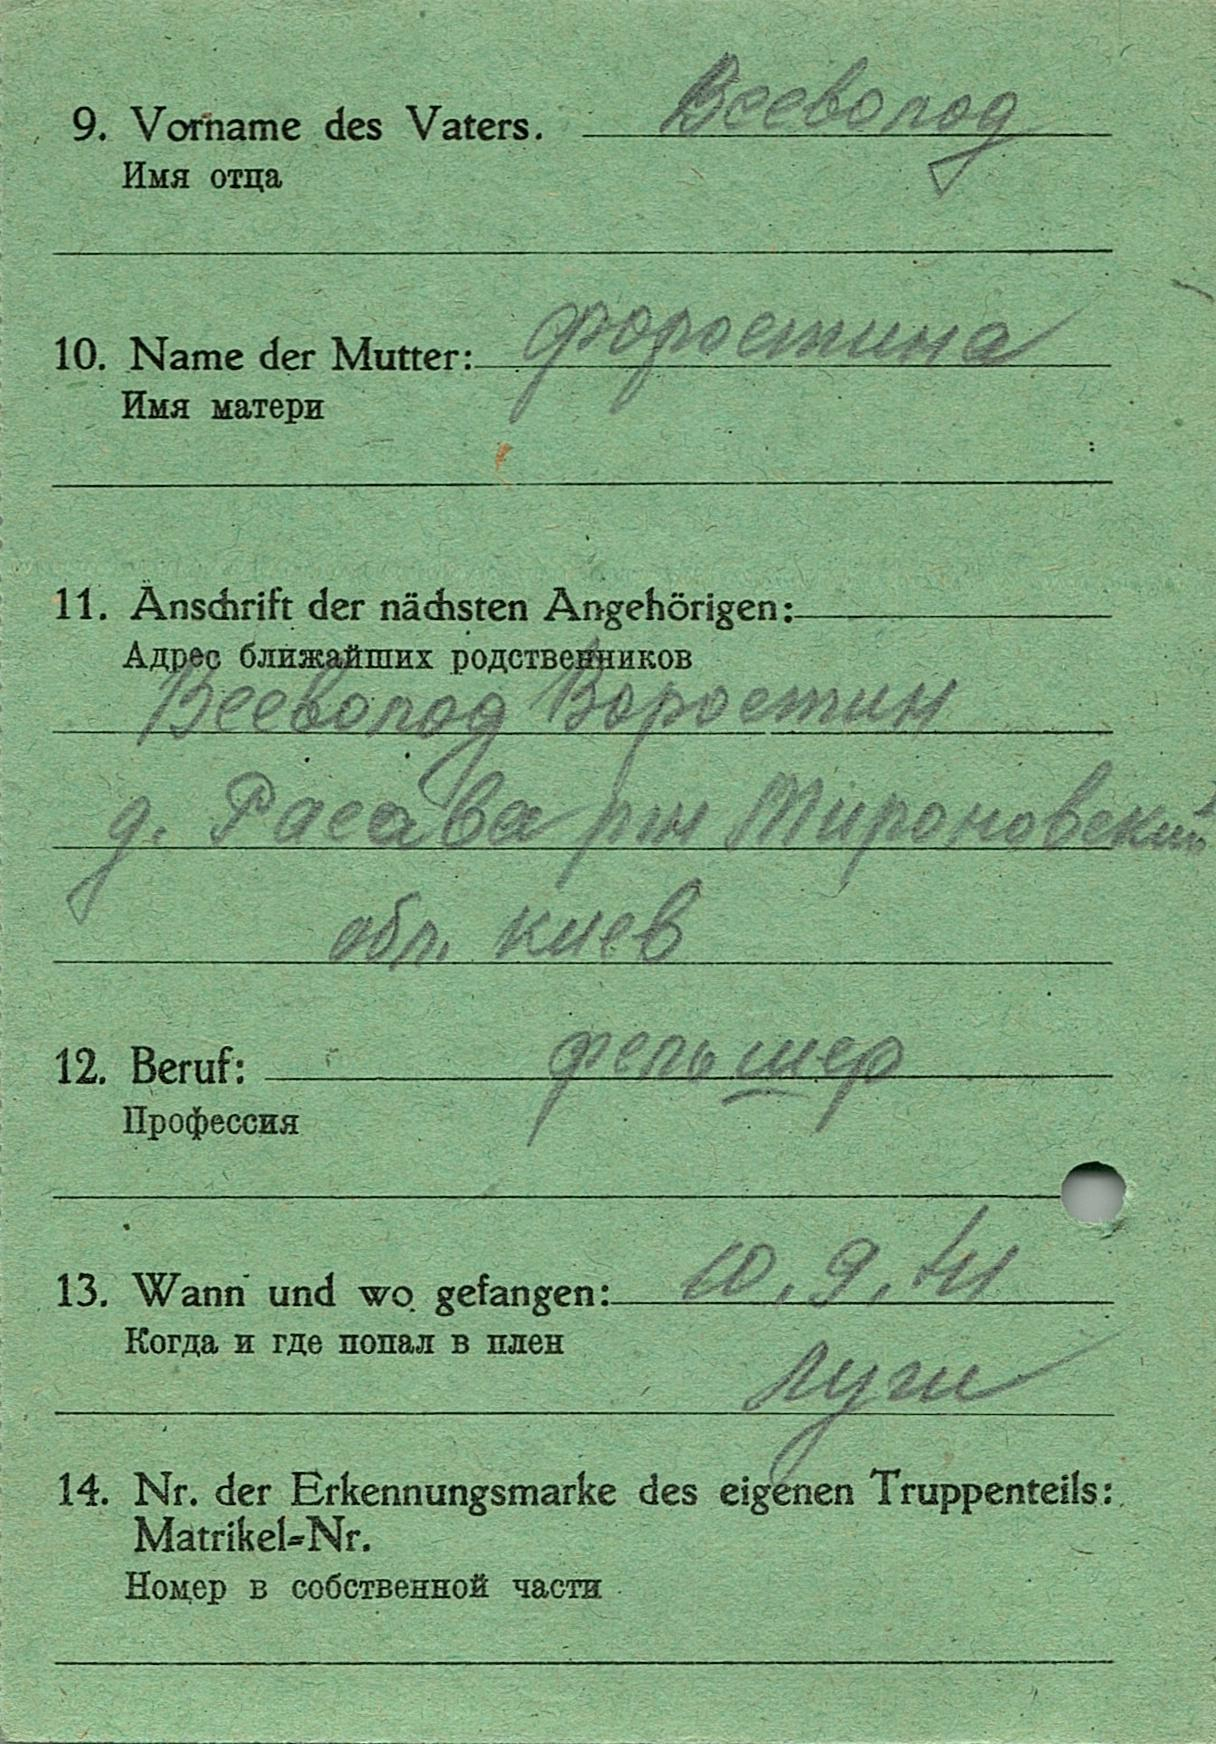 9. Vorname des Vaters. Всеволод
Имя отца
10. Name der Mutter: Форостина
Имя матери
11. Anschrift der nächsten Angehörigen:
Адрес ближайших родственников
Всеволод Воростин
д. Расава р-н Мироновский
обл. Киев
12. Beruf: фельшер
Профессия
13. Wann und wo gefangen: 10.9.41
Когда и где попал в плен
Лузи
14. Nr. der Erkennungsmarke des eigenen Truppenteils:
Matrikel-Nr.
Номер в собственной части